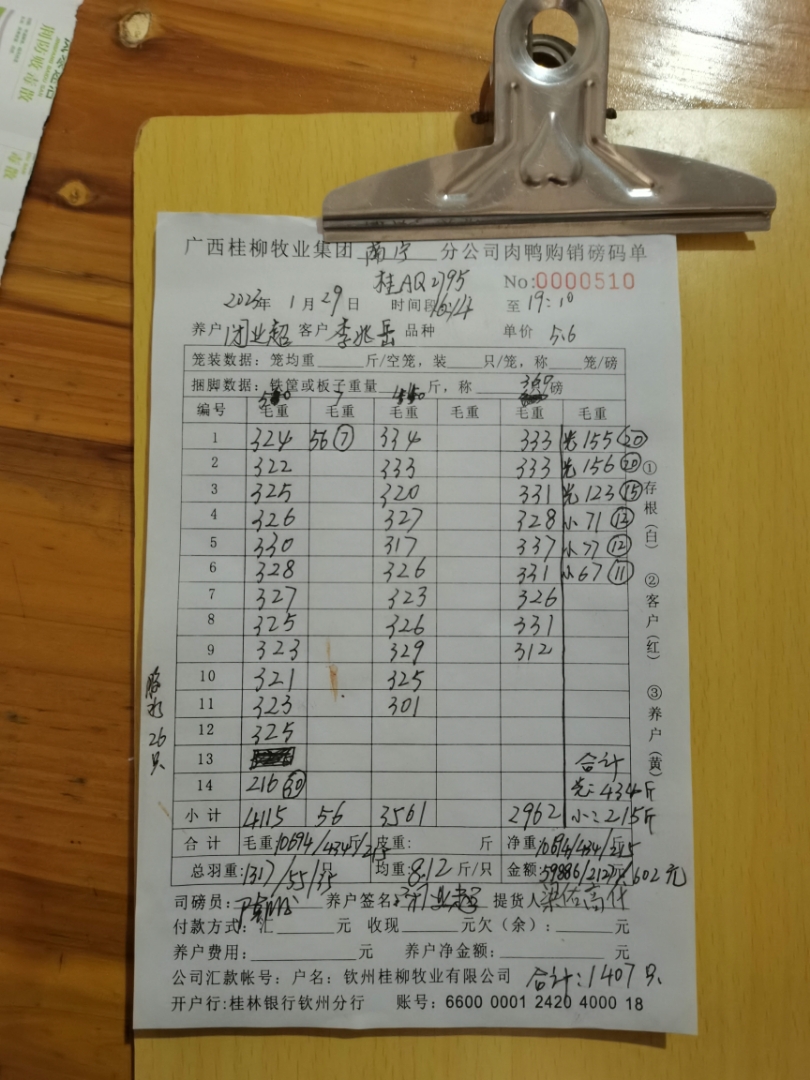 广西桂柳牧业集团 南宁 分公司肉鸭购销磅码单
桂AQ2795 No:0000510
2023年 1月29日 时间段16:14 至19:10
养户 闭业超 客户 李兆岳 品种 单价 5.6
笼装数据: 笼均重 斤/空笼, 装 只/笼, 称 笼/磅
捆脚数据: 铁筐或板子重量 斤, 称 360 磅
编号 毛重 毛重 毛重 毛重 毛重 毛重
1 324 56⑦ 334 333 光155⑳
2 322 333 333 光156⑳
3 325 320 331 光123⑮
4 326 327 328 小71⑫
5 330 317 337 小77⑫
6 328 326 331 小67⑪
7 327 323 326
8 325 326 331
9 323 329 312
10 321 325
11 323 301
12 325
13 合计
14 216㉚ 光:434斤
小计 4115 56 3561 2962 小:215斤
合计 毛重:10694/434斤/215 皮重: 斤 净重:10694/434/215
总羽重:1317/55/35只 均重:8.12斤/只 金额:59886/2127/602元
司磅员: 养户签名:闭业超 提货人:梁佑高代
付款方式: 汇 元 收现 元欠(余): 元
养户费用: 元 养户净金额: 元
公司汇款帐号: 户名: 钦州桂柳牧业有限公司 合计:1407只
开户行:桂林银行钦州分行 账号: 6600 0001 2420 4000 18
①存根(白) ②客户(红) ③养户(黄)
26只